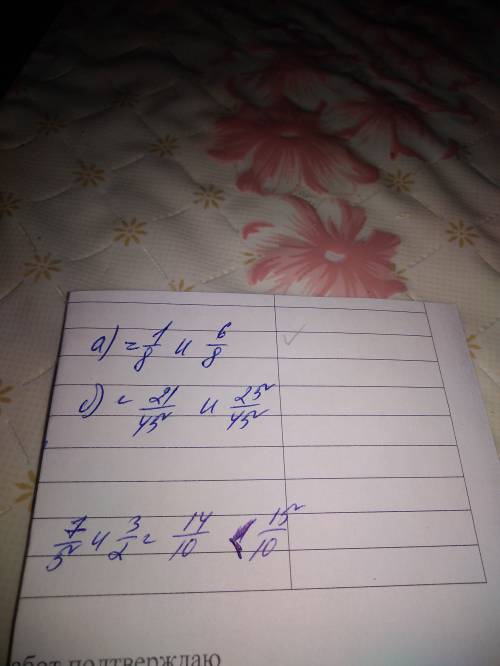 а) = 1/8 и 6/8
б) = 21/45 и 25/45
7/5 и 3/2 = 14/10 < 15/10
подтверждаю